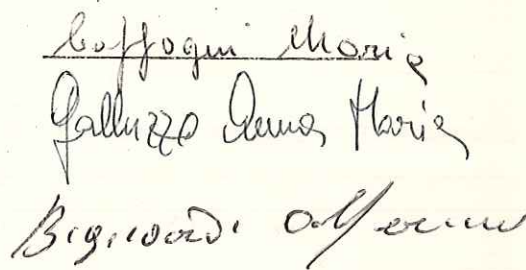 Coffagni Maria
Galluzzo Anna Maria
Bignardi